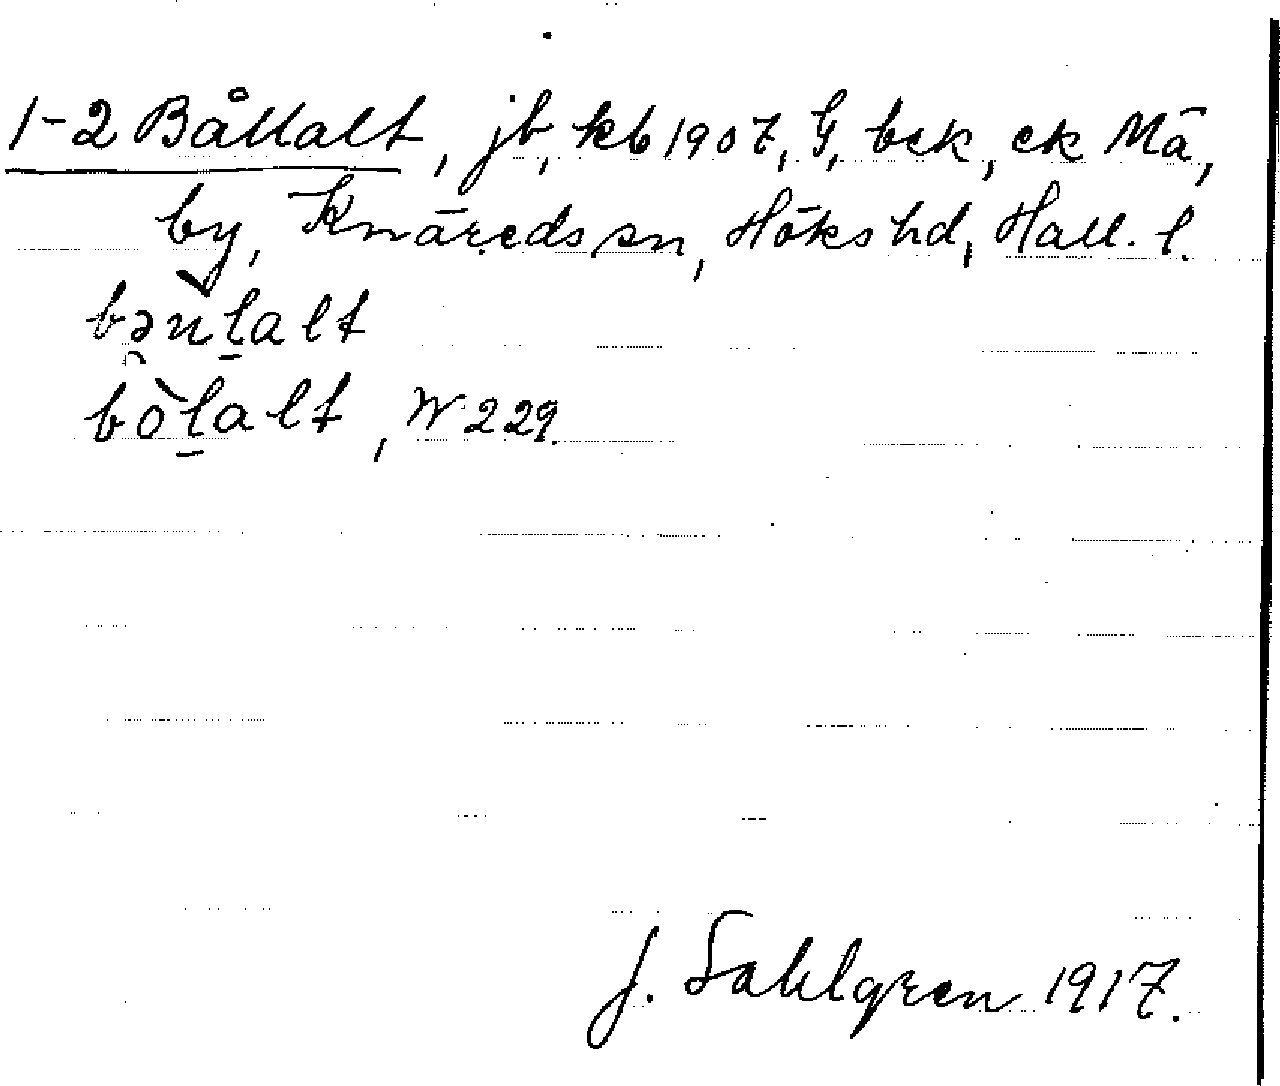 1-2 Båttalt, jb, kb 1907, G, bck, ck Mä,
by, Knäreds sn, Höks hd, Hall. l.
bəu̇l̲alt
bòl̲alt, W 229.
J. Sahlgren 1917.